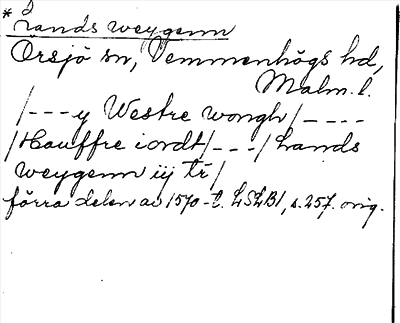 * Lands weygenn
Örsjö sn, Vemmenhögs hd,
Malm. l.
/---y Westre wongh/----
/Hauffre iordt/---/Lands
weygenn iij tr/
förra delen av 1570-t. LSLB1, s. 257. orig.